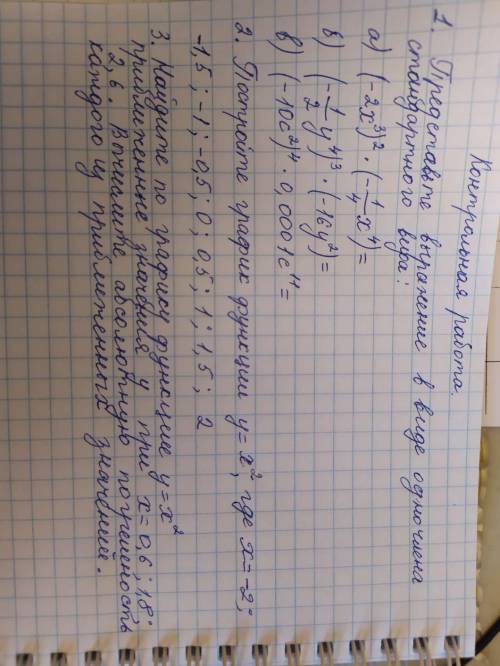 Контрольная работа.
1. Представьте выражение в виде одночлена
стандартного вида:
а) (-2x³)² · (-1/4 x⁴) =
б) (-1/2 y⁴)³ · (-16y²) =
в) (-10c²)⁴ · 0,0001c¹¹ =
2. Постройте график функции y = x², где x = -2;
-1,5; -1; -0,5; 0; 0,5; 1; 1,5; 2
3. Найдите по графику функцие y = x²
приближенные значения y при x = 0,6; 1,8;
2,6. Вычислите абсолютную погрешность
каждого из приближенных значений.